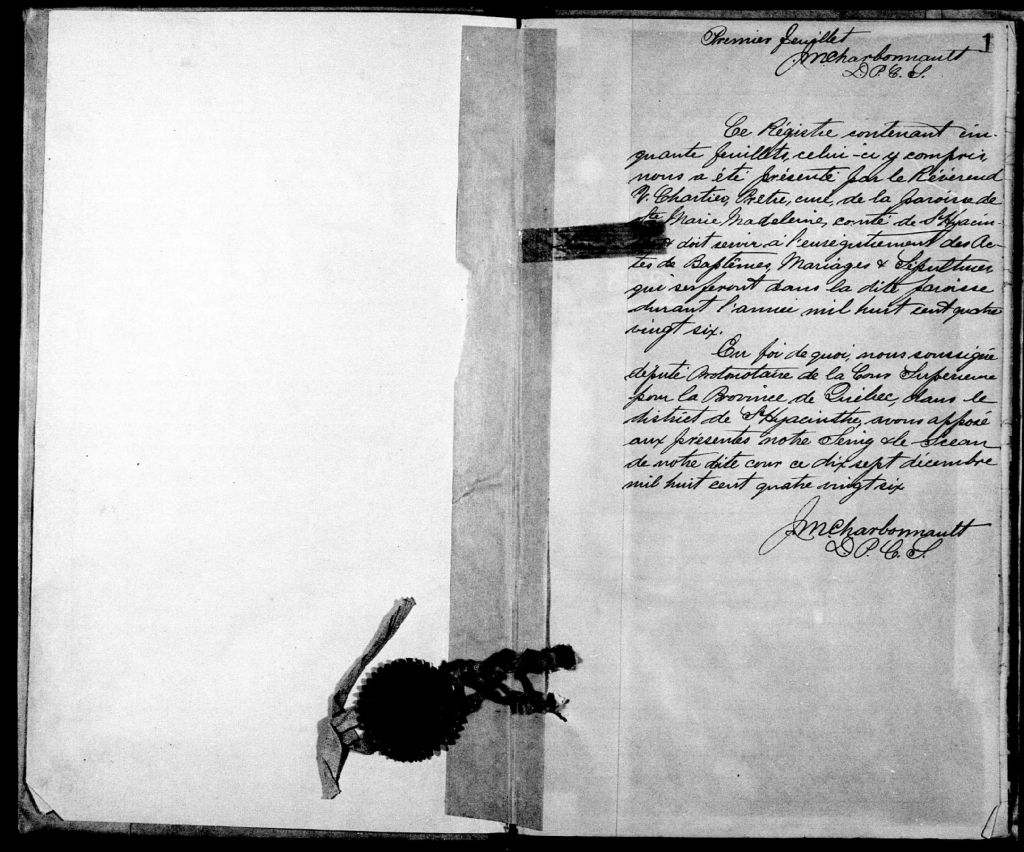 Premier feuillet
1
JMCharbonnault
D P. C. S.
Ce Régistre contenant cin-
quante feuillets, celui-ci y compris,
nous a été présenté par le Révérend
V. Chartier, Prêtre, curé, de la paroisse de
Ste Marie Madeleine, comté de St Hyacin-
& doit servir à l'enregistrement des Ac-
tes de Baptêmes, Mariages & Sépultures
qui se feront dans la dite paroisse
durant l'année mil huit cent quatre
vingt six.
En foi de quoi, nous soussigné
député Protonotaire de la Cour Supérieure
pour la Province de Québec, dans le
district de St Hyacinthe, avons apposé
aux présentes notre Seing & le Sceau
de notre dite cour ce dix sept décembre
mil huit cent quatre vingt six
JMCharbonnault
D P. C. S.